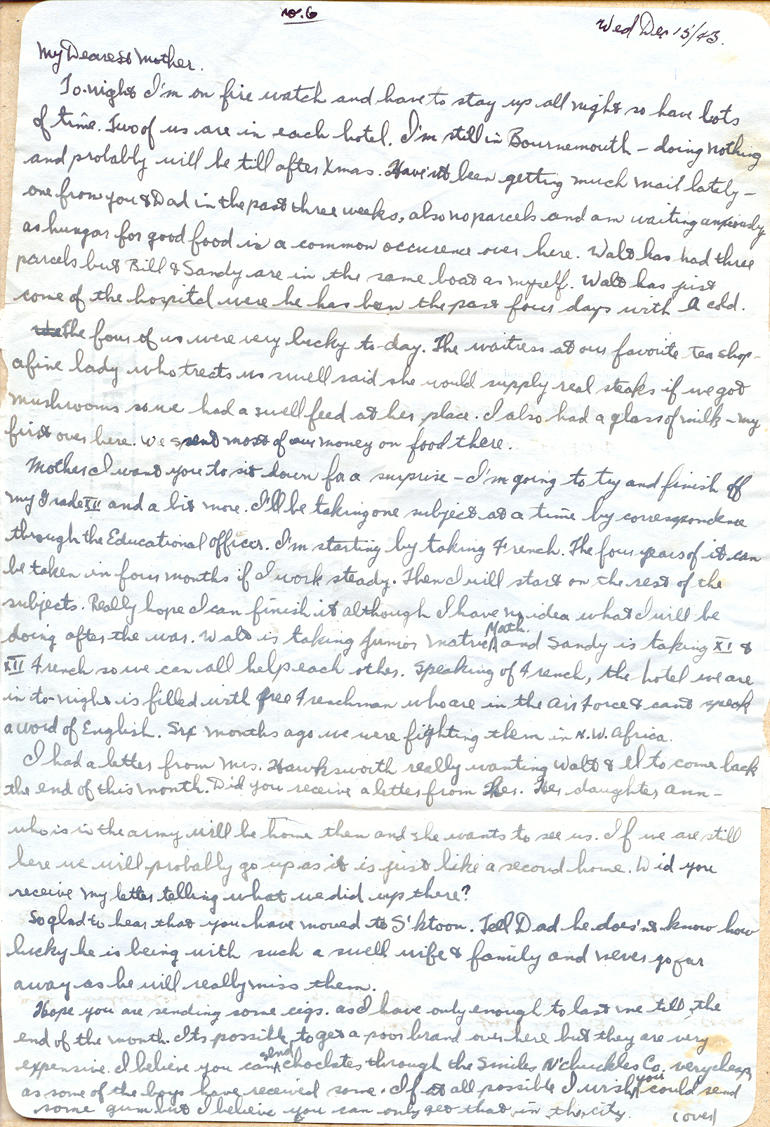 no. 6
Wed Dec 15/43.
My Dearest Mother.
To-night I'm on fire watch and have to stay up all night so have lots
of time. Two of us are in each hotel. I'm still in Bournemouth - doing nothing
and probably will be till after Xmas. Have'nt been getting much mail lately -
one from you & Dad in the past three weeks, also no parcels and am waiting anxiously
as hungar for good food is a common occurence over here. Walt has had three
parcels but Bill & Sandy are in the same boat as myself. Walt has just
come of the hospital were he has been the past four days with a cold.
The four of us were very lucky to-day. The waitress at our favorite tea shop -
a fine lady who treats us swell said she would supply real steaks if we got
mushrooms so we had a swell feed at her place. I also had a glass of milk - my
first over here. We spend most of our money on food there.
Mother I want you to sit down for a surprise - I'm going to try and finish off
my Grade XII and a bit more. I'll be taking one subject at a time by correspondence
through the Educational officer. I'm starting by taking French. The four years of it can
be taken in four months if I work steady. Then I will start on the rest of the
subjects. Really hope I can finish it although I have no idea what I will be
doing after the war. Walt is taking Junior Matric Math. and Sandy is taking XI &
XII French so we can all help each other. Speaking of French, the hotel we are
in to-night is filled with free Frenchman who are in the Air Force & cant speak
a word of English. Six months ago we were fighting them in N.W. Africa.
I had a letter from Mrs. Hawksworth really wanting Walt & I to come back
the end of this month. Did you receive a letter from her. Her daughter Ann -
who is in the army will be home then and she wants to see us. If we are still
here we will probably go up as it is just like a second home. Did you
receive my letter telling what we did up there?
So glad to hear that you have moved to S'ktoon. Tell Dad he does'nt know how
lucky he is being with such a swell wife & family and never go far
away as he will really miss them.
Hope you are sending some cigs. as I have only enough to last me till the
end of the month. Its possible to get a poor brand over here but they are very
expensive. I believe you can send choclates through the Smiles N'chuckles Co. very cheap
as some of the boys have received some. If at all possible I wish you could send
some gum but I believe you can only get that in the city. (over)